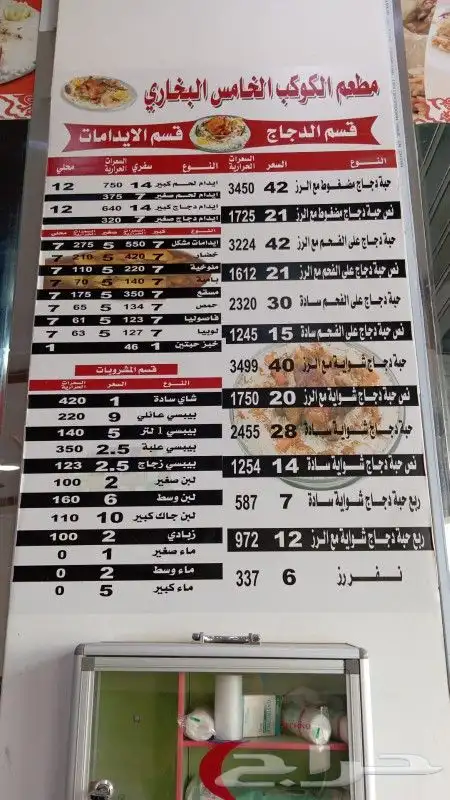 مطعم الكوكب الخامس البخاري
قسم الدجاج
قسم الايدامات
النوع السعر السعرات الحرارية
حبة دجاج مضغوط مع الرز 42 3450
نص حبة دجاج مضغوط مع الرز 21 1725
حبة دجاج على الفحم مع الرز 42 3224
نص حبة دجاج على الفحم مع الرز 21 1612
حبة دجاج على الفحم سادة 30 2320
نص حبة دجاج على الفحم سادة 15 1245
حبة دجاج شواية مع الرز 40 3499
نص حبة دجاج شواية مع الرز 20 1750
حبة دجاج شواية سادة 28 2455
نص حبة دجاج شواية سادة 14 1254
ربع حبة دجاج شواية سادة 7 587
ربع حبة دجاج شواية مع الرز 12 972
نفر رز 6 337
النوع سفري السعرات الحرارية محلي
ايدام لحم كبير 14 750 12
ايدام لحم صغير 7 375
ايدام دجاج كبير 14 640 12
ايدام دجاج صغير 7 320
النوع كبير السعرات الحرارية صغير السعرات الحرارية محلي
ايدامات مشكل 7 550 5 275 7
خضار 7 420 5 210 7
ملوخية 7 220 5 110 7
بامية 7 140 5 70 7
مسقع 7 350 5 175 7
حمص 7 134 5 65 7
فاصوليا 7 123 5 61 7
لوبيا 7 127 5 63 7
خبز حبتين 1 46 1
قسم المشروبات
النوع السعر السعرات الحرارية
شاي سادة 1 420
بيبسي عائلي 9 220
بيبسي 1 لتر 5 140
بيبسي علبة 2.5 350
بيبسي زجاج 2.5 123
لبن صغير 2 100
لبن وسط 6 160
لبن جاك كبير 10 110
زبادي 2 100
ماء صغير 1 0
ماء وسط 2 0
ماء كبير 5 0
حراج